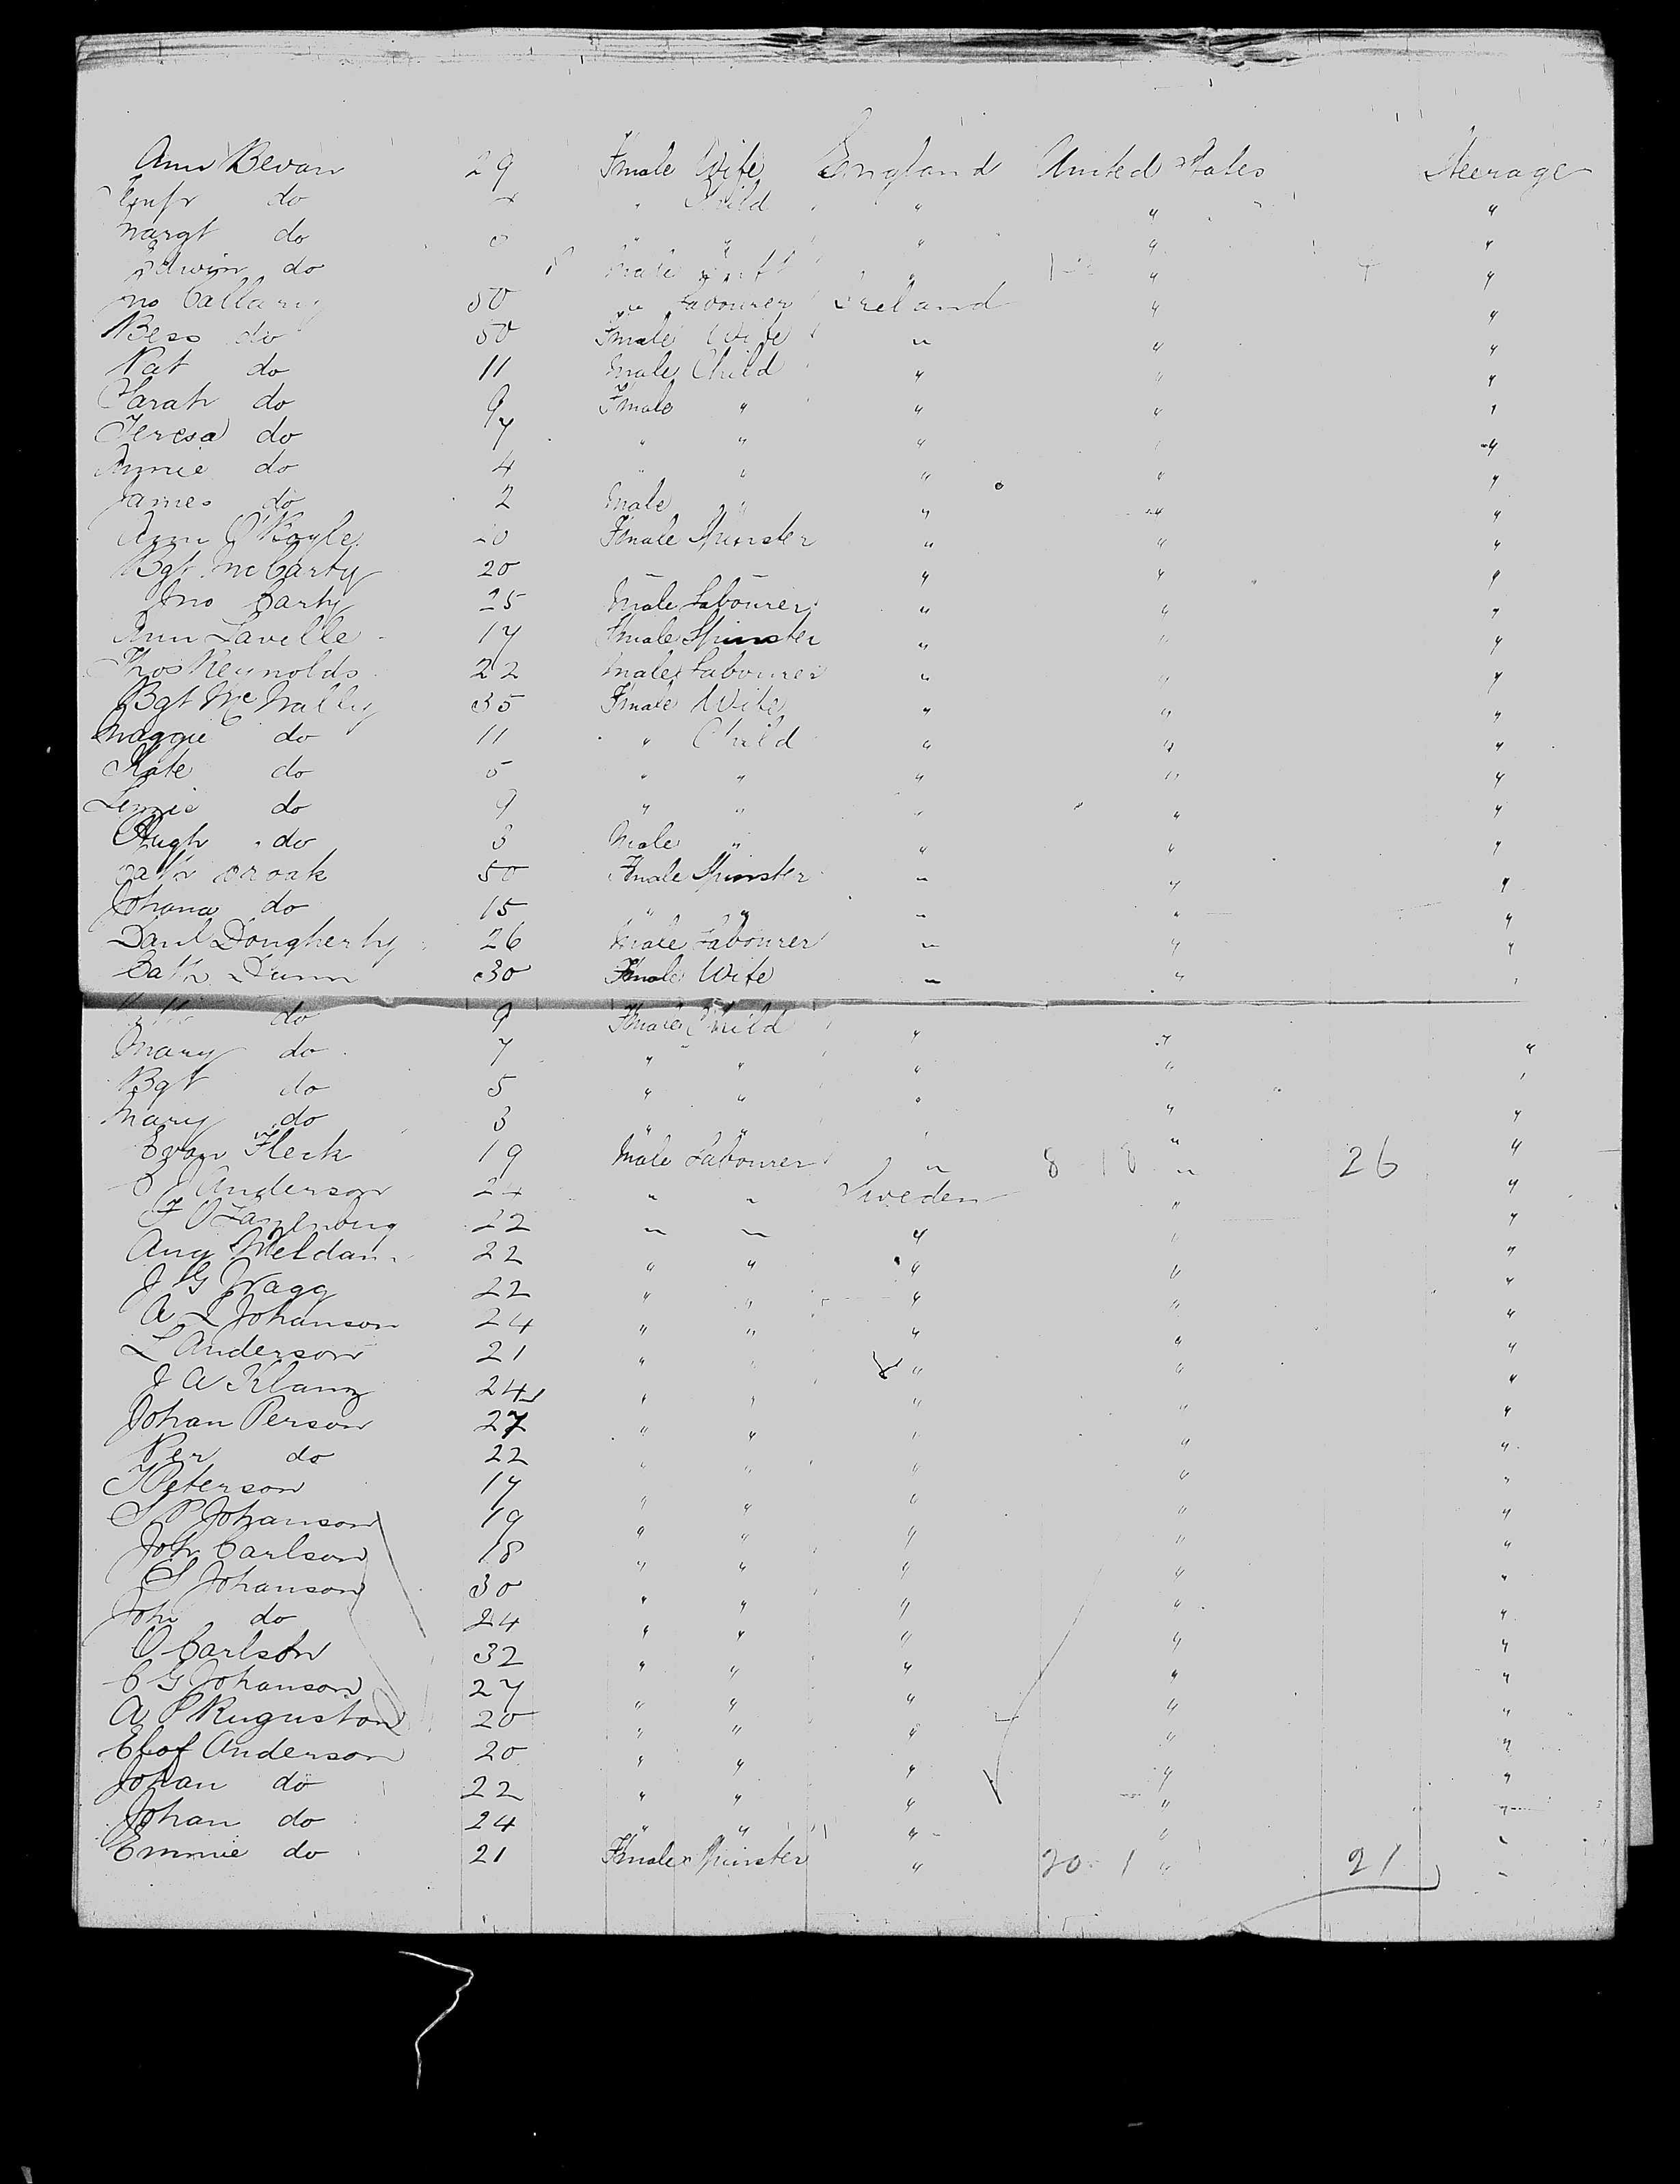 Ann Bevan 29 Female Wife England United States Steerage
do " Child " " "
Margt do " " " " "
Edwin do Male Inft " " "
Jno Callary 50 " Labourer Ireland " "
Bess do 50 Female Wife " " "
Pat do 11 Male Child " " "
Sarah do 9 Female " " " "
Teresa do 7 " " " " "
Annie do 4 " " " " "
James do 2 Male " " " "
Ann O'Boyle 20 Female Spinster " " "
Bgt McCarty 20 " " " " "
Jno Carty 25 Male Labourer " " "
Ann Lavelle 17 Female Spinster " " "
Thos Reynolds 22 Male Labourer " " "
Bgt McNally 35 Female Wife " " "
Maggie do 11 " Child " " "
Kate do 5 " " " " "
do 9 " " " " "
Hugh do 3 Male " " " "
Cath 50 Female Spinster " " "
Johana do 15 " " " " "
Danl Dougherty 26 Male Labourer " " "
Cath Dunn 30 Female Wife " " "
do 9 Female Child " " "
Mary do 7 " " " " "
Bgt do 5 " " " " "
Mary do 3 " " " " "
Fleck 19 Male Labourer " 8 18 " 26 "
Anderson 24 " " Sweden " "
22 " " " " "
Aug 22 " " " " "
J G 22 " " " " "
A L Johanson 24 " " " " "
L Anderson 21 " " " " "
J A Klang 24 " " " " "
Johan Person 27 " " " " "
Per do 22 " " " " "
Peterson 17 " " " " "
S P Johanson 19 " " " " "
Joh Carlson 18 " " " " "
S Johanson 30 " " " " "
Joh do 24 " " " " "
O Carlson 32 " " " " "
C G Johanson 27 " " " " "
A P Ruguston 20 " " " " "
Elof Anderson 20 " " " " "
Johan do 22 " " " " "
Johan do 24 " " " " "
Emmie do 21 Female Spinster " 20 1 " 21 "